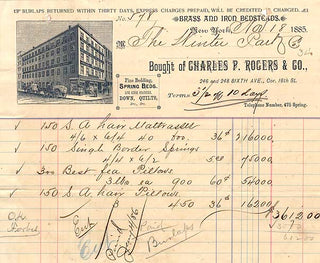 IF BURLAPS RETURNED WITHIN THIRTY DAYS, EXPRESS CHARGES PREPAID, WILL BE CREDITED AS CHARGED.
BRASS AND IRON BEDSTEADS.
No. 598
New York, Nov 18 1885.
M The Winter Park Co
Bought of CHARLES F. ROGERS & CO.,
246 and 248 SIXTH AVE., Cor. 16th St.
Fine Bedding,
SPRING BEDS,
DOWN, QUILTS,
&c., &c.
TERMS 10 days
Telephone Number, 475-Spring.
✓ 150 S. A. hair Mattrasses
4/6 6/4 40 lbs. 36¢ 216000
✓ 150 Single Border Springs
4/4 x 6/2 500 75000
✓ 300 Best Pillows
3 lbs ea 900 60¢ 54000
✓ 150 S. A. hair Pillows
3 450 36¢ 16200
$3612.00
OK
Paid
Burlaps